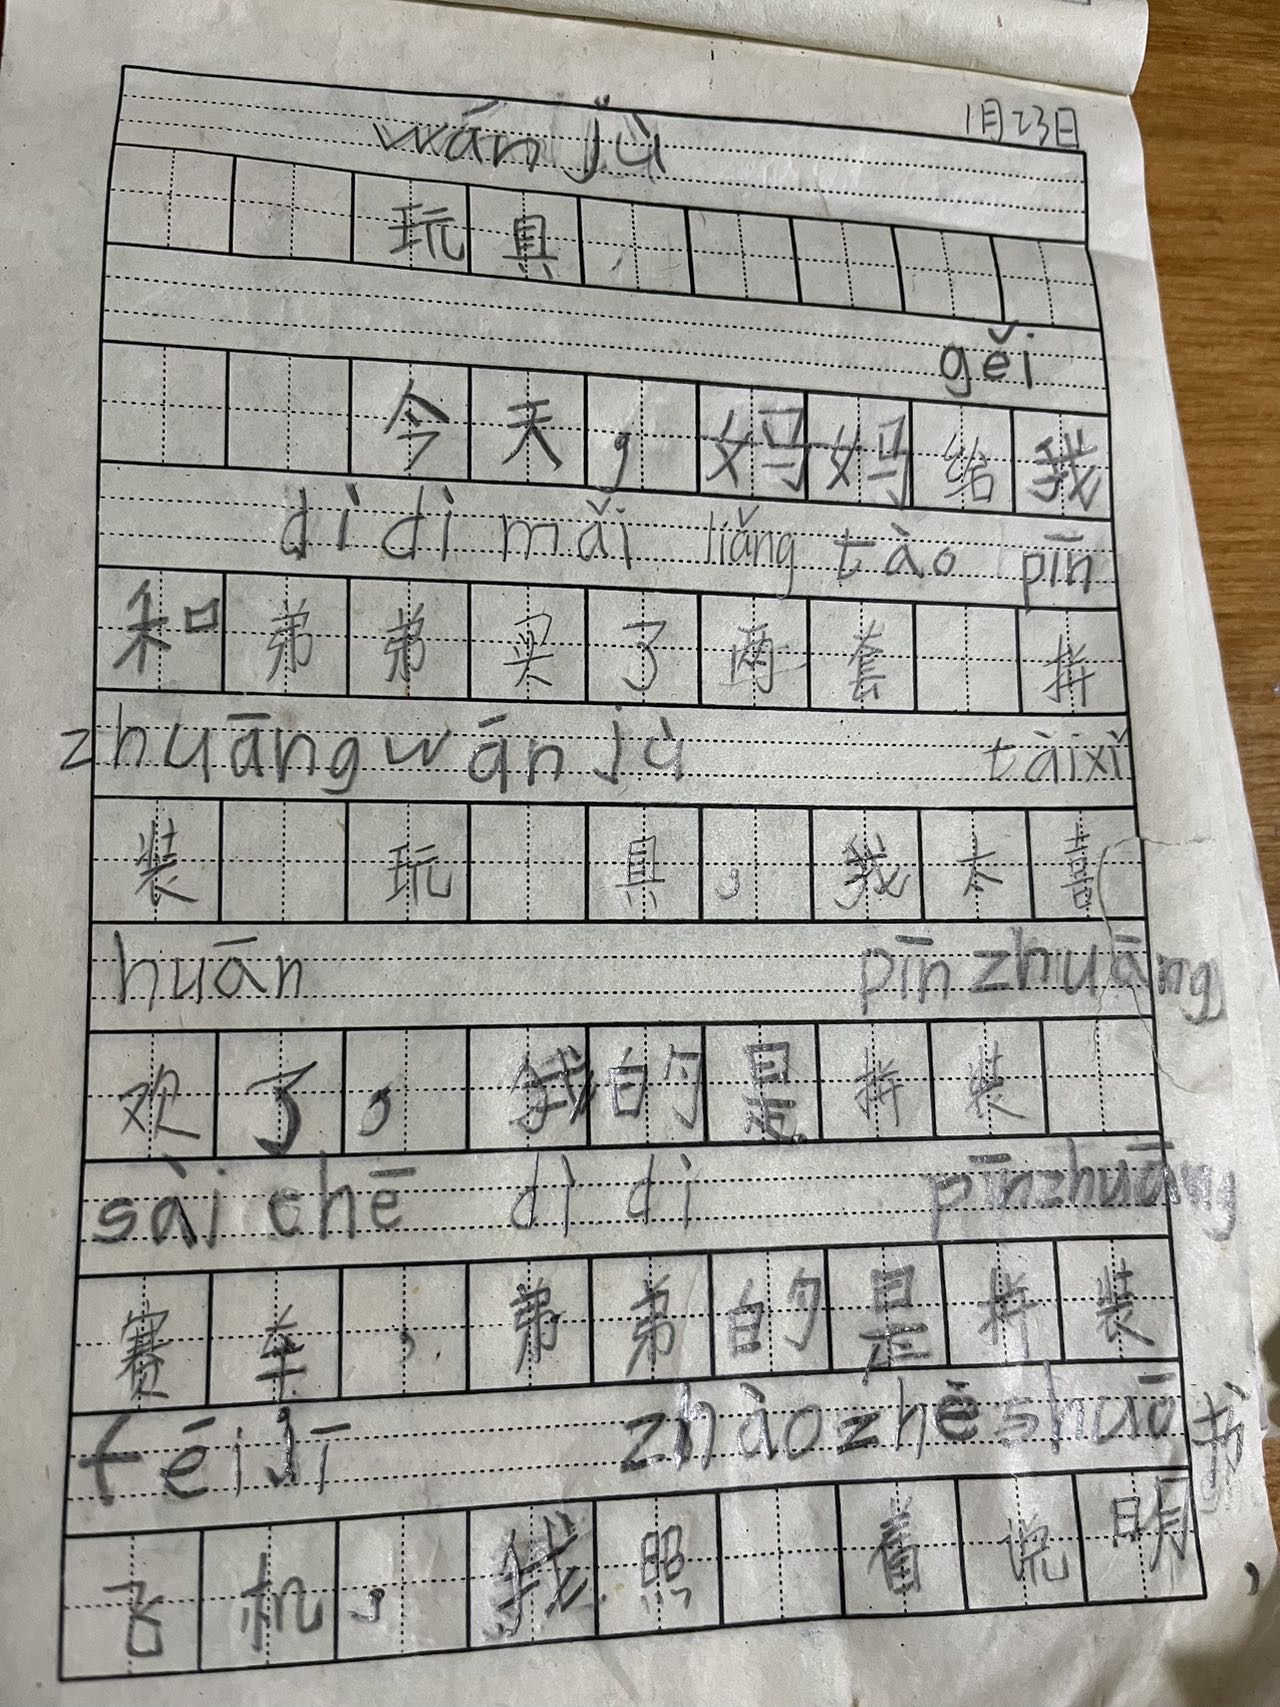 1月23日
wán jù
玩具
gěi
今天,妈妈给我
dì dì mǎi liǎng tào pīn
和弟弟买了两套拼
zhuāng wán jù tài xǐ
装玩具,我太喜
huān pīn zhuāng
欢了,我的是拼装
sài chē dì dì pīn zhuāng
赛车,弟弟的是拼装
fēi jī zhào zhè shuō
飞机,我照着说明书,